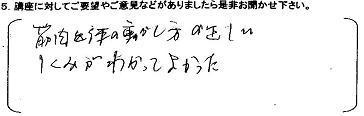 5. 講座に対してご要望やご意見などがありましたら是非お聞かせ下さい。
筋肉と体の動かし方の正しい
しくみがわかってよかった